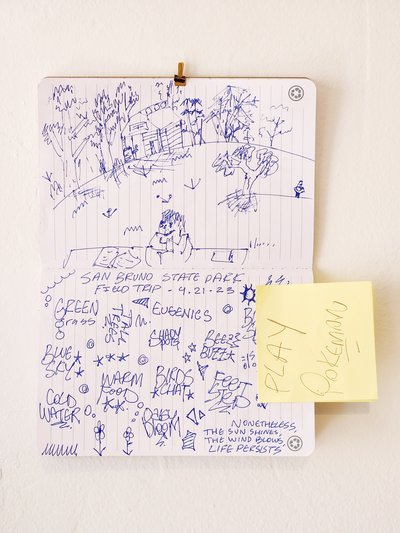 SAN BRUNO STATE PARK
FIELD TRIP - 4.21.23
GREEN
Grass
TALL
TREES
EUGENICS
SHADY
SPOTS
BEEZZ
BUZZ
BLUE
SKY
WARM
FOOD
BIRDS
CHAT
FEET
COLD
WATER
BABY
BLOOM
NONETHELESS,
THE SUN SHINES,
THE WIND BLOWS,
LIFE PERSISTS.
PLAY
POKEMAN